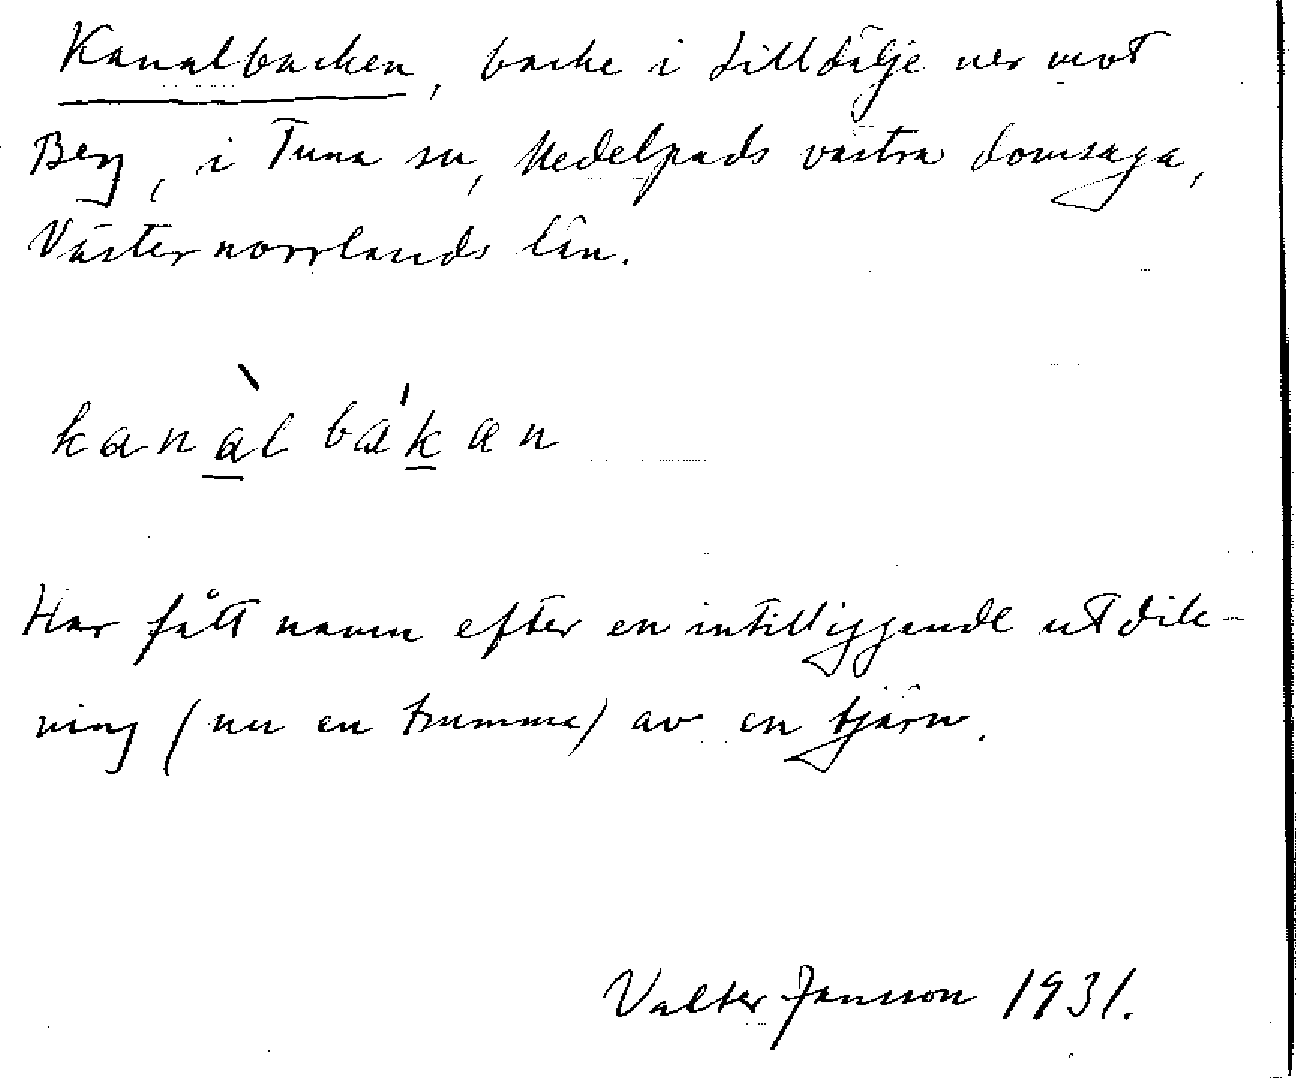 Kanalbacken, backe i Lilldälje ner mot
Berg, i Tuna sn, Medelpads västra domsaga,
Västernorrlands län.
kanàl bákan
Har fått namn efter en intilliggende utdik-
ning (nu en trumma) av en tjärn.
Valter Jansson 1931.